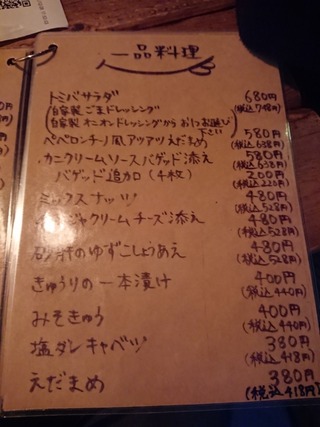 一品料理
トミバサラダ 680円
(自家製 ごまドレッシング (税込748円)
自家製 オニオンドレッシングから お1つお選び下さい)
ペペロンチーノ風アツアツえだまめ 580円
(税込638円)
カニクリームソースバゲット添え 580円
(税込638円)
バゲット追加(4枚) 200円
(税込220円)
ミックスナッツ 480円
(税込528円)
ジャクリームチーズ添え 480円
(税込528円)
砂肝のゆずこしょうあえ 480円
(税込528円)
きゅうりの一本漬け 400円
(税込440円)
みそきゅう 400円
(税込440円)
塩ダレキャベツ 380円
(税込418円)
えだまめ 380円
(税込418円)